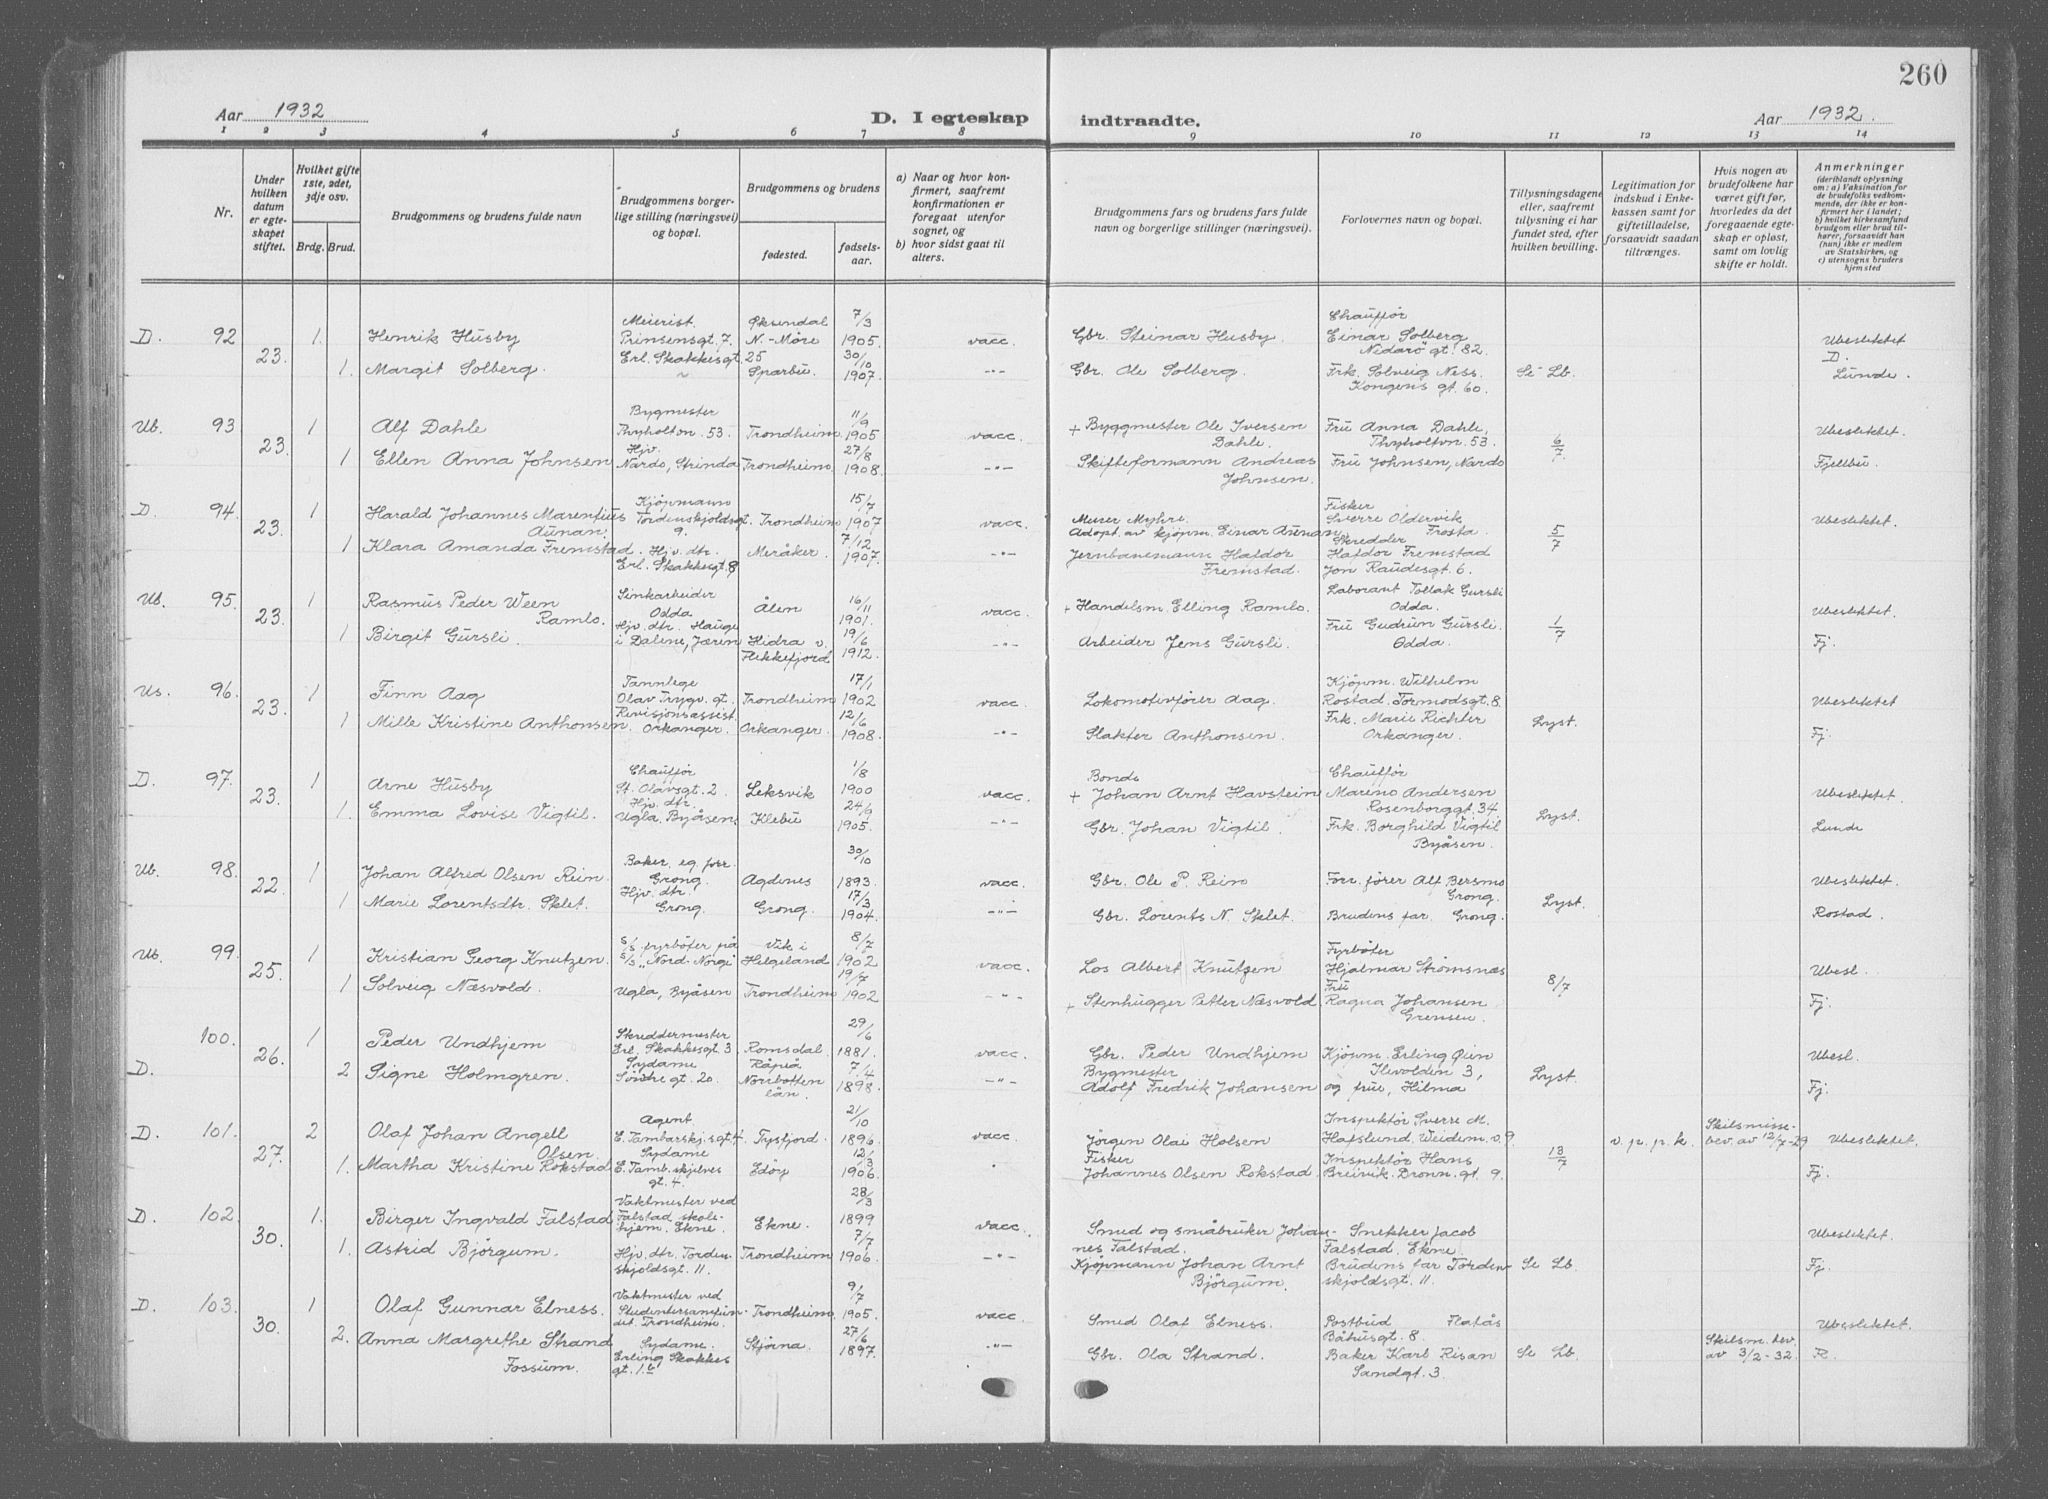 260
Aar 1932
D. I egteskap indtraadte.
Aar 1932.
1 2 3 4 5 6 7 8 9 10 11 12 13 14
Nr.
Under hvilken datum er egteskapet stiftet.
Hvilket gifte 1ste, 2det, 3dje osv.
Brdg. Brud.
Brudgommens og brudens fulde navn
Brudgommens borgerlige stilling (næringsvei) og bopæl.
Brudgommens og brudens
fødested.
fødselsaar.
a) Naar og hvor konfirmert, saafremt konfirmationen er foregaat utenfor sognet, og
b) hvor sidst gaat til alters.
Brudgommens fars og brudens fars fulde navn og borgerlige stillinger (næringsvei).
Forlovernes navn og bopæl.
Tillysningsdagene eller, saafremt tillysning ei har fundet sted, efter hvilken bevilling.
Legitimation for indskud i Enkekassen samt for giftetilladelse, forsaavidt saadan tiltrænges.
Hvis nogen av brudefolkene har været gift før, hvorledes da det foregaaende egteskap er opløst, samt om lovlig skifte er holdt.
Anmerkninger (deriblandt oplysning om: a) Vaksination for de brudefolks vedkommende, der ikke er konfirmert her i landet; b) hvilket kirkesamfund brudgom eller brud tilhører, forsaavidt han (hun) ikke er medlem av Statskirken, og c) utensogns bruders hjemsted
D. 92 23. 1. Henrik Husby Meierist. Prinsensgt. 7. Øksendal N.-Møre 7/3 1905. vacc. Gbr. Steinar Husby Chauffør Einar Solberg Nidarö gt. 82. Ubeslektet
1. Margit Solberg. Erl. Skakkesgt. 25 Sparbu. 30/10 1907. -"- Gbr. Ole Solberg. Frk. Solveig Ness. Kongens gt. 60. Se Lb. D. Lunde.
Ub. 93 23. 1 Alf Dahle Bygmester Thyholton. 53. Trondheim 11/9 1905 vacc. + Byggmester Ole Iversen Dahle. Fru Anna Dahle, Thyholton. 53. 6/7 Ubeslektet.
1 Ellen Anna Johnsen Hjv. Nardo, Strinda Trondheim 27/8 1908. -"- Skifteformann Andreas Johnsen. Fru Johnsen, Nardo Fjellbu.
D. 94. 23. 1 Harald Johannes Marenfius Aunan. Kjöpmann Tordenskjoldsgt. 9. Trondheim 15/7 1907 vacc. Murer Myhre. Adopt. av kjøpm. Einar Aunan Fisker Sverre Oldervik Frosta. 5/7 Ubeslektet.
1 Klara Amanda Fremstad. Hjv. dtr. Erl. Skakkesgt. 8 Meråker. 7/12 1907. -"- Jernbanemann Haldor Fremstad. Skredder Haldor Fremstad Jon Raudesgt. 6.
Ub. 95. 23. 1 Rasmus Peder Ween Ramlo. Sinkarbeider Odda Ålen 16/11 1901. vacc. + Handelsm. Elling Ramlo. Laborant Tollak Gursli Odda. 1/7 Ubeslektet.
1 Birgit Gursli. Hjv. dtr. Hauge i Dalene, Jæren Hidra v. Flekkefjord 19/6 1912. -"- Arbeider Jens Gursli. Fru Gudrun Gursli. Odda. Fj.
Us. 96. 23. 1 Finn Aag Tannlege Olav Trygv. gt. Trondheim 17/1 1902 vacc. Lokomotivfører Aag. Kjöpm. Wilhelm Rostad. Tormodsgt. 8. Lyst. Ubeslektet
1 Mille Kristine Anthonsen Revisjonsassist. Orkanger. Orkanger. 12/6 1908. -"- Slakter Anthonsen. Frk. Marie Richter Orkanger. Fj.
D. 97. 23. 1 Arne Husby Chauffør St. Olavsgt. 2 Leksvik 1/8 1900 vacc. Bonde + Johan Arnt Havstein Chauffør Mareno Andersen Rosenborggt. 34 Lyst. Ubeslektet.
1. Emma Lovise Vigtil. Hjv. dtr. Ugla, Byåsen. Klebu 24/9 1905. -"- Gbr. Johan Vigtil. Frk. Borghild Vigtil Byåsen. Lunde
Ub. 98. 22. 1 Johan Alfred Olsen Rein. Baker. eg. forr. Grong. Agdenes 30/10 1893. vacc. Gbr. Ole P. Rein Forr. fører Alf Bersmo Grong. Lyst. Ubeslektet.
1 Marie Lorentsdtr. Sklet. Hjv. dtr. Grong. Grong. 17/3 1904. -"- Gbr. Lorents N. Sklet. Brudens far Grong. Rostad.
Ub. 99. 25. 1 Kristian Georg Knutzen. fyrböter på s/s "Nord-Norge" Vik i Helgeland 8/7 1902 vacc. Los Albert Knutzen Fyrböter Hjalmar Strömsnæs 8/7 Ubesl.
1 Solveig Næsvold. Ugla, Byåsen Trondheim 19/7 1902 -"- + Stenhugger Petter Næsvold. Fru Ragna Johansen Grensen. Fj.
100. 26. 1 Peder Undhjem Skreddermester Erl. Skakkesgt. 3. Romsdal. 29/6 1881. vacc. Gbr. Peder Undhjem Kjöpm. Erling Øien Ilevolden 3, Lyst. Ubesl.
D. 2 Signe Holmgren. Sydame Söndre gt. 20. Råneå Norrbotten län. 7/4 1898. -"- Bygmester Adolf Fredrik Johansen og frue, Hilma Fj.
D. 101. 27. 2 Olaf Johan Angell Olsen. Agent E. Tambarskj.sgt. 4. Tysfjord. 21/10 1896. vacc. Jörgen Olai Holsen Inspektör Sverre M. Hafslund, Weidem. v. 9 13/7 v. p. p. k. Skilsmisse- bev. av 12/7-29 Ubeslektet.
1. Martha Kristine Rokstad Sydame E. Tamb.skjelves gt. 4. Edöy 12/3 1906. Fisker Johannes Olsen Rokstad. Inspektør Hans Breivik. Dronn. gt. 9. Fj.
D. 102. 30. 1. Birger Ingvald Falstad Vaktmester ved Falstad skolehjem. Ekne. Ekne. 28/3 1899 vacc. Smed og småbruker Johannes Falstad. Snekker Jacob Falstad. Ekne. Ubeslektet.
1. Astrid Bjørgum. Hjv. dtr. Tordenskjoldsgt. 11. Trondheim 7/7 1906. -"- Kjöpmann Johan Arnt Björgum. Brudens far Tordenskjoldsgt. 11. Se Lb Fj.
D. 103. 30. 1 Olaf Gunnar Elness. Vaktmester ved Studentersamfundet. Trondheim. Trondheim 9/7 1905. vacc. Smed Olaf Elness. Postbud Flatås Båhusgt. 8. Ubeslektet.
2. Anna Margrethe Strand Fossum. Sydame. Erling Skakkes gt. 1. Stjørna. 27/6 1897. -"- Gbr. Ola Strand. Baker Karl Risan Sandgt. 3. Se Lb. Skilsm. bev. av 3/2-32. R.